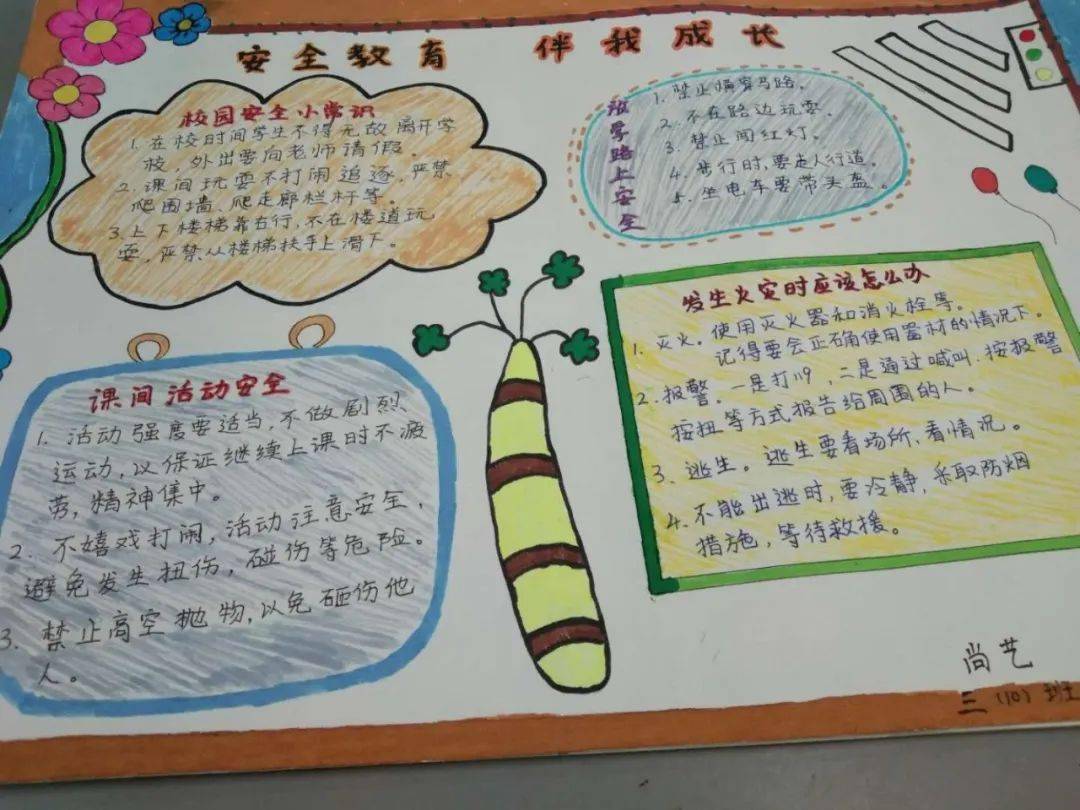 安全教育 伴我成长
校园安全小常识
1. 在校时间学生不得无故离开学
校，外出要向老师请假。
2. 课间玩耍不打闹追逐，严禁
爬围墙、爬走廊栏杆等。
3. 上下楼梯靠右行，不在楼道玩
耍，严禁从楼梯扶手上滑下。
放学路上安全
1. 禁止横穿马路。
2. 不在路边玩耍。
3. 禁止闯红灯。
4. 步行时，要走人行道。
5. 坐电车要带头盔。
课间活动安全
1. 活动强度要适当，不做剧烈
运动，以保证继续上课时不疲
劳，精神集中。
2. 不嬉戏打闹，活动注意安全，
避免发生扭伤，碰伤等危险。
3. 禁止高空抛物，以免砸伤他
人。
发生火灾时应该怎么办
1. 灭火。使用灭火器和消火栓等。
记得要会正确使用器材的情况下。
2. 报警。一是打119，二是通过喊叫、按报警
按扭等方式报告给周围的人。
3. 逃生。逃生要看场所，看情况。
4. 不能出逃时，要冷静，采取防烟
措施，等待救援。
尚艺
三（10）班